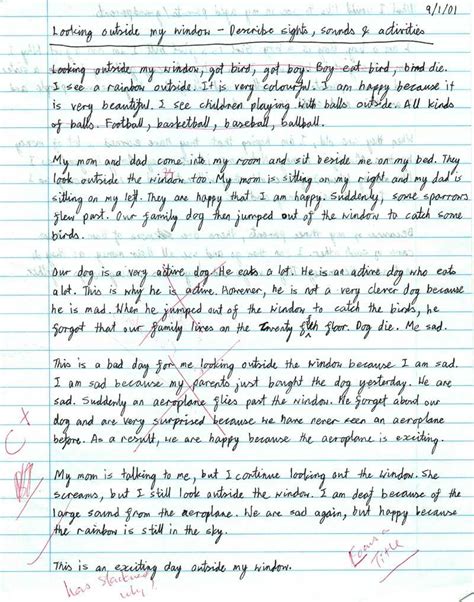 9/1/01
Looking outside my window - Describe sights, sounds & activities
Looking outside my window, got bird, got boy. Boy eat bird, bird die.
I see a rainbow outside. It is very colourful. I am happy because it
is very beautiful. I see children playing with balls outside. All kinds
of balls. Football, basketball, baseball, ballball.
My mom and dad come into my room and sit beside me on my bed. They
look outside the window too. My mom is sitting on my right and my dad is
sitting on my left. They are happy that I am happy. Suddenly, some sparrows
flew past. Our family dog then jumped out of the window to catch some
birds.
Our dog is a very active dog. He eats a lot. He is an active dog who eats
a lot. This is why he is active. However, he is not a very clever dog because
he is mad. When he jumped out of the window to catch the birds, he
forgot that our family lives on the Twenty fifth floor. Dog die. Me sad.
This is a bad day for me looking outside the window because I am sad.
I am sad because my parents just bought the dog yesterday. He are
sad. Suddenly an aeroplane flies past the window. We forget about our
dog and are very surprised because we have never seen an aeroplane
before. As a result, we are happy because the aeroplane is exciting.
C+
My mom is talking to me, but I continue looking out the window. She
screams, but I still look outside the window. I am deaf because of the
large sound from the aeroplane. We are sad again, but happy because
the rainbow is still in the sky.
This is an exciting day outside my window.
Focus on
Title
why?